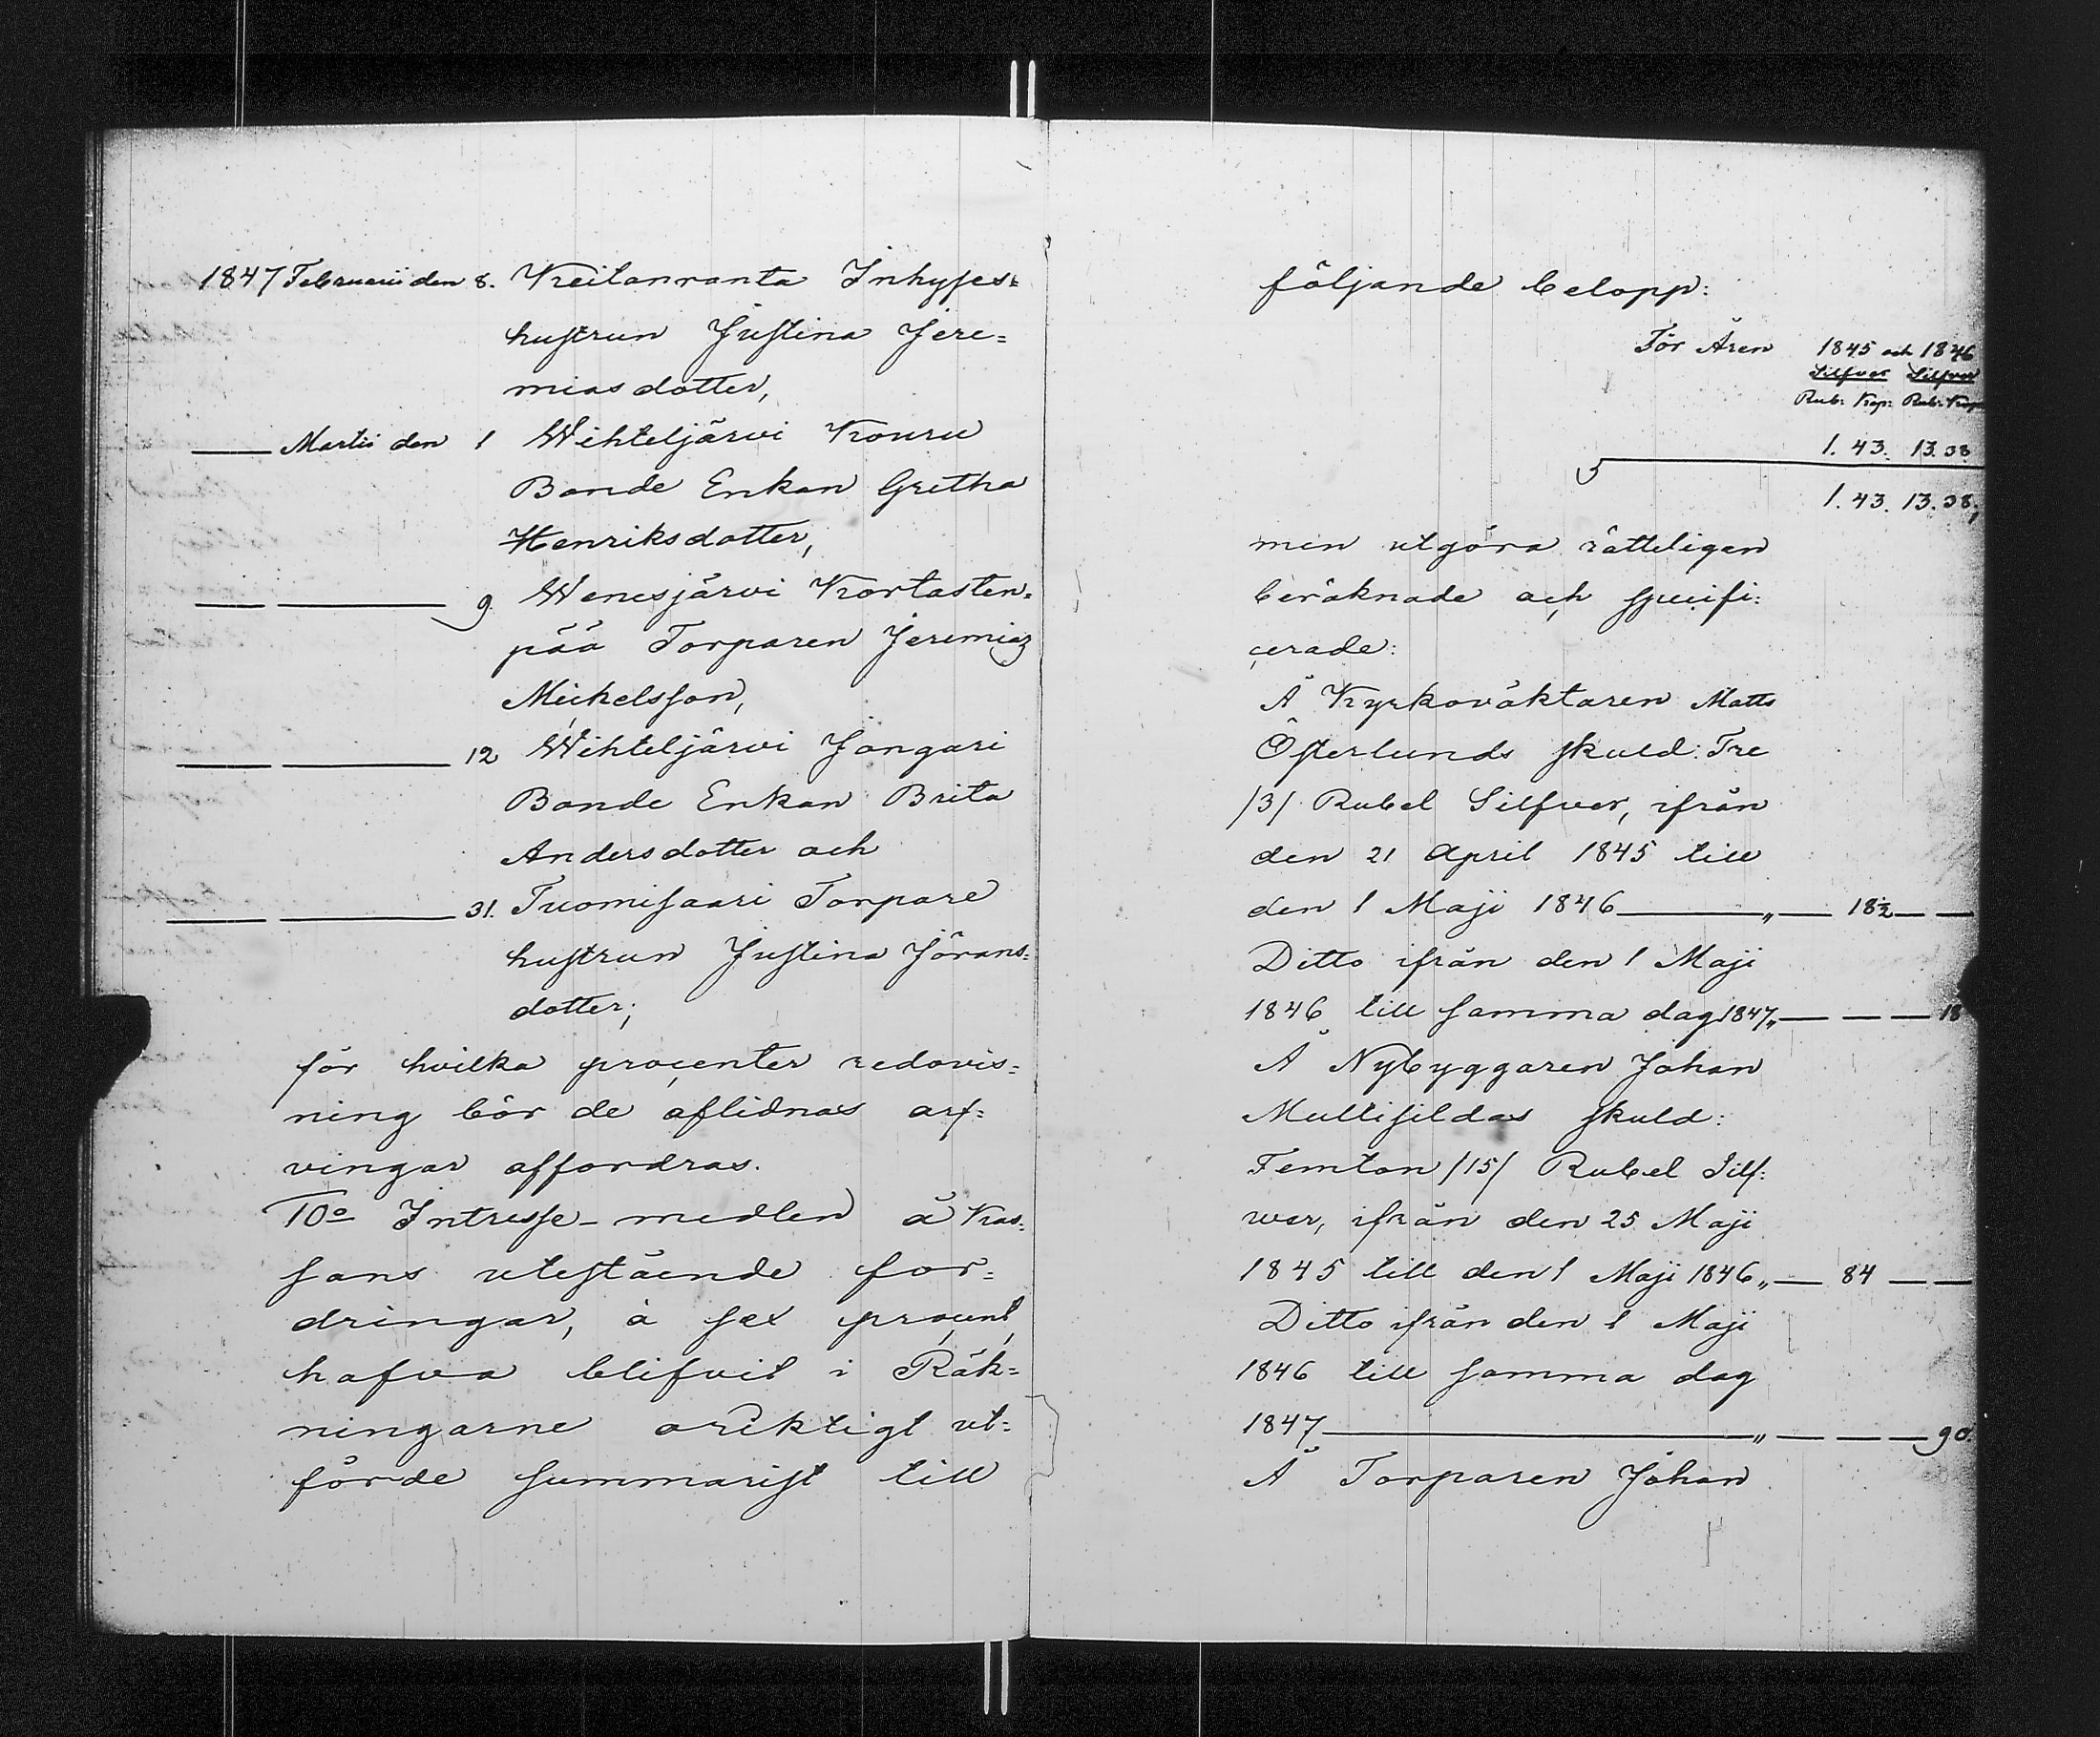 1847 Februarii den 8. Keitanranta Inhyses=
hustrun Justina Jere=
miasdotter,
— Martii den 1 Wihteljärvi Kouru
Bonde Enkan Gretha
Henriksdotter,
— — 9 Wenesjärvi Kortasten=
pää Torparen Jeremias
Mickelsson,
— — 12 Wihteljärvi Jongari
Bonde Enkan Brita
Andersdotter och
— — 31. Tuomisaari Torpare
hustrun Justina Jörans=
dotter;
för hvilka procenter redovis=
ning bör de aflidnas arf=
vingar affordras.
10o Intresse-medlen å Kas=
sans utestående for=
dringar, à sex procent,
hafva blifvit i Räk=
ningarne oriktigt ut=
förde summarist till
följande belopp:
För Åren 1845 och 1846
Silfver Silfver
Rub: Kop: Rub: Kop
1. 43. 13. 38.
1. 43. 13. 38;
men utgöra rätteligen
beräknade och specifi=
cerade:
Å Kyrkováktaren Matts
Österlunds skuld: Tre
/3/ Rubel Silfver, ifrån
den 21 April 1845 till
den 1 Maji 1846 — „ — 18½ — —
Ditto ifrån den 1 Maji
1846 till samma dag 1847 „ — — — 18
Å Nybyggaren Johan
Multisildas skuld:
Femton /15/ Rubel Silf=
ver, ifrån den 25 Maji
1845 till den 1 Maji 1846 „ — 84 — —
Ditto ifrån den 1 Maji
1846 till samma dag
1847 — „ — — — 90.
Å Torparen Johan